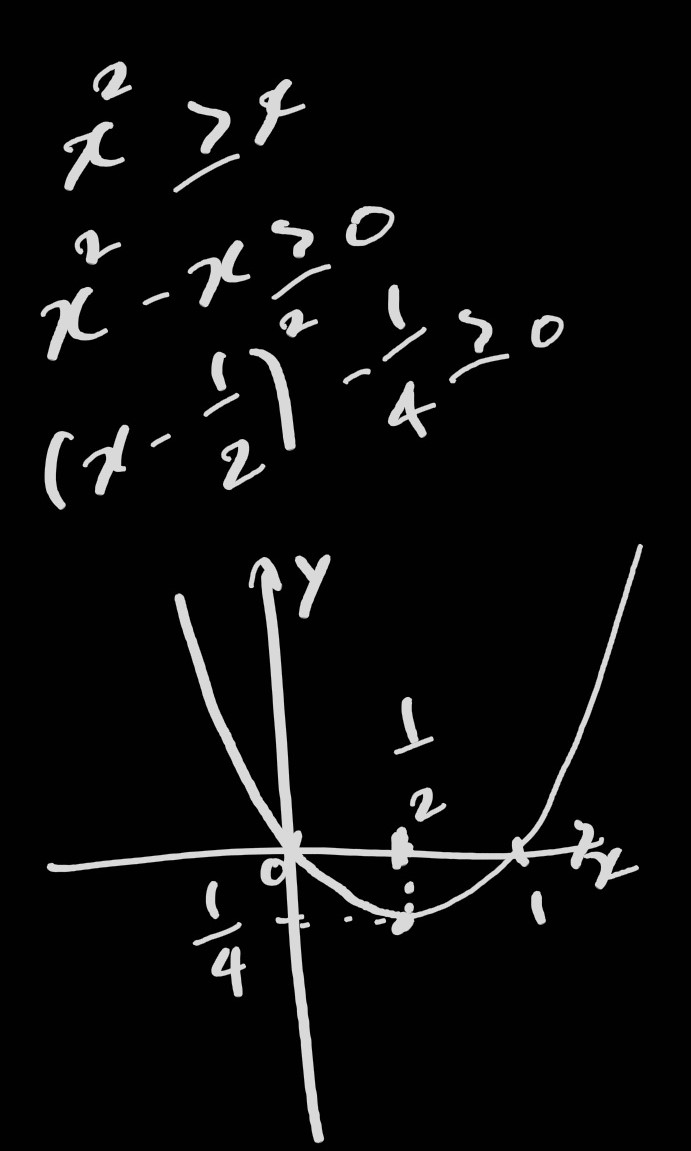 x² ≥ x
x² - x ≥ 0
(x - 1/2)² - 1/4 ≥ 0
y
1/2
0
x
1/4
1